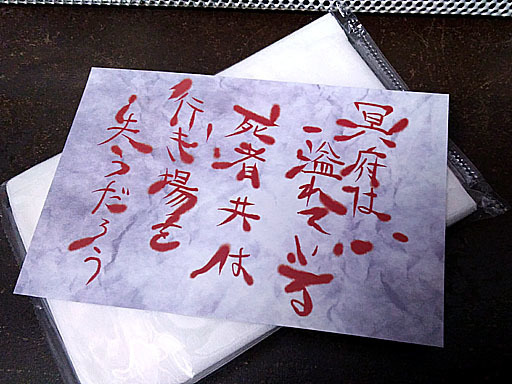 冥府は
溢れている
死者共は
行き場を
失うだろう